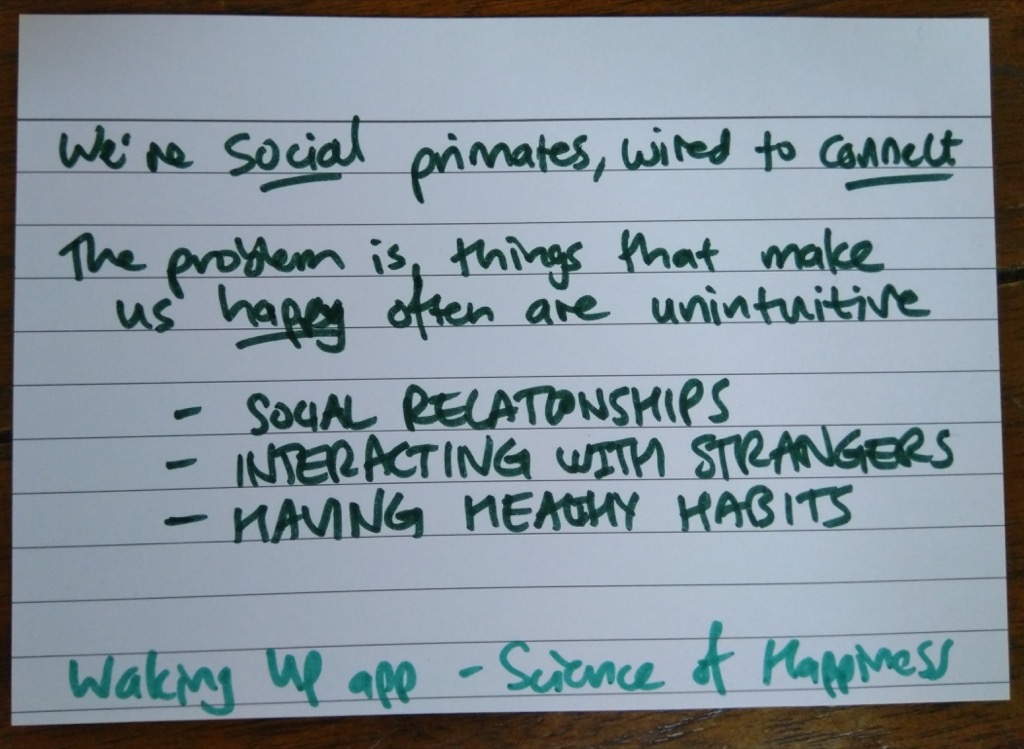 We're social primates, wired to connect
The problem is, things that make
us happy often are unintuitive
- SOCIAL RELATIONSHIPS
- INTERACTING WITH STRANGERS
- HAVING HEALTHY HABITS
Waking Up app - Science of Happiness